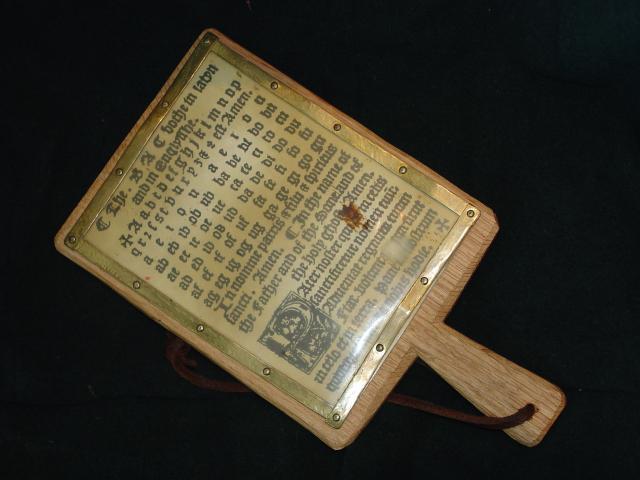 The . B A C bothe in latyn
and in Englysshe.
✠ A a b c d e f g h i j k l m n o p
q r z s s t v u x y z & est Amen.
a e i o u a e i o u
ab eb ib ob ub ba be bi bo bu
ac ec ic oc uc ca ce ci co cu
ad ed id od ud da de di do du
af ef if of uf fa fe fi fo fu
ag eg ig og ug ga ge gi go gu
In nomine patris & filii & spiritus
sancti. Amen. In the name of
the Father and of the Sonne and of
the holy ghost. Amen.
Ater noster qui es in celis
sanctificetur nomen tuum.
Adveniat regnum tuum
Fiat voluntas tua sicut
in celo et in terra, panem nostrum